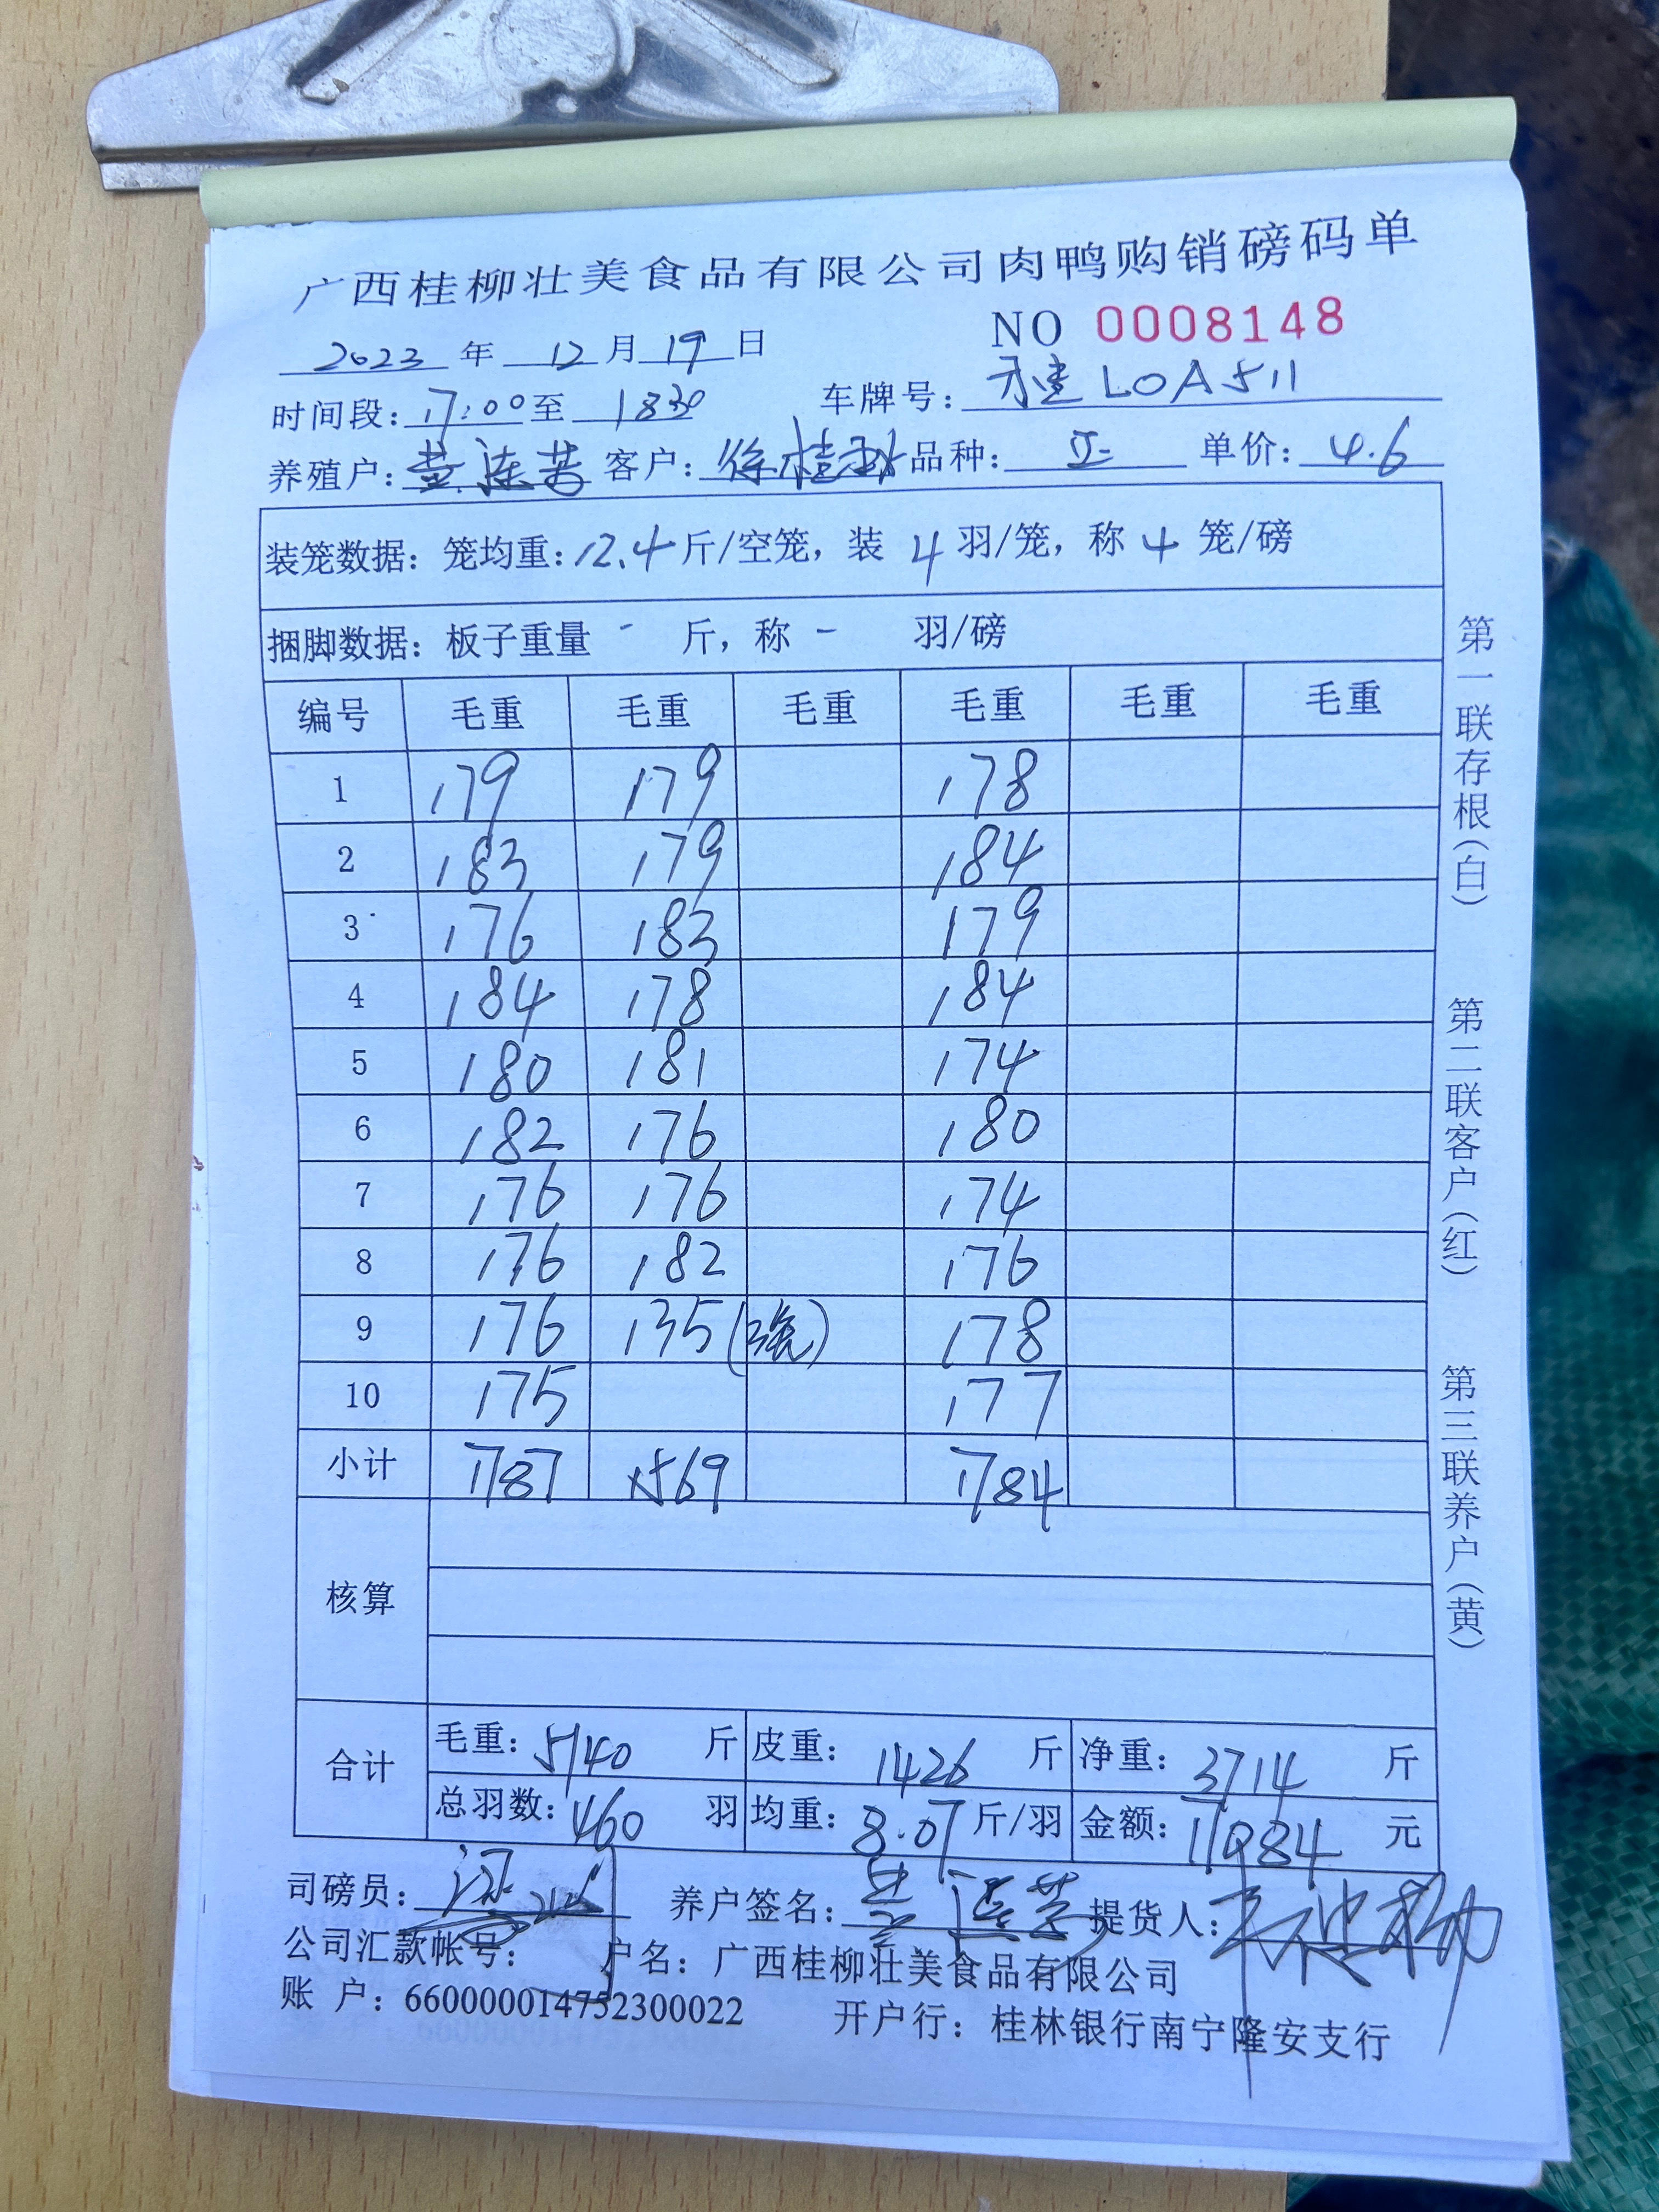 广西桂柳壮美食品有限公司肉鸭购销磅码单
NO 0008148
2023 年 12 月 19 日
时间段: 17:00 至 1830 车牌号: LOA511
养殖户: 黄连芳 客户: 徐桂 品种: 单价: 4.6
装笼数据: 笼均重: 12.4 斤/空笼, 装 4 羽/笼, 称 4 笼/磅
捆脚数据: 板子重量 - 斤, 称 - 羽/磅
编号 毛重 毛重 毛重 毛重 毛重 毛重
1 179 179 178
2 183 179 184
3 176 183 179
4 184 178 184
5 180 181 174
6 182 176 180
7 176 176 174
8 176 182 176
9 176 135(3笼) 178
10 175 177
小计 1787 1569 1784
核算
合计 毛重: 5140 斤 皮重: 1426 斤 净重: 3714 斤
总羽数: 460 羽 均重: 8.07 斤/羽 金额: 17084 元
司磅员: 养户签名: 黄连芳 提货人:
公司汇款帐号: 户名: 广西桂柳壮美食品有限公司
账 户: 660000014752300022 开户行: 桂林银行南宁隆安支行
第一联存根(白)
第二联客户(红)
第三联养户(黄)